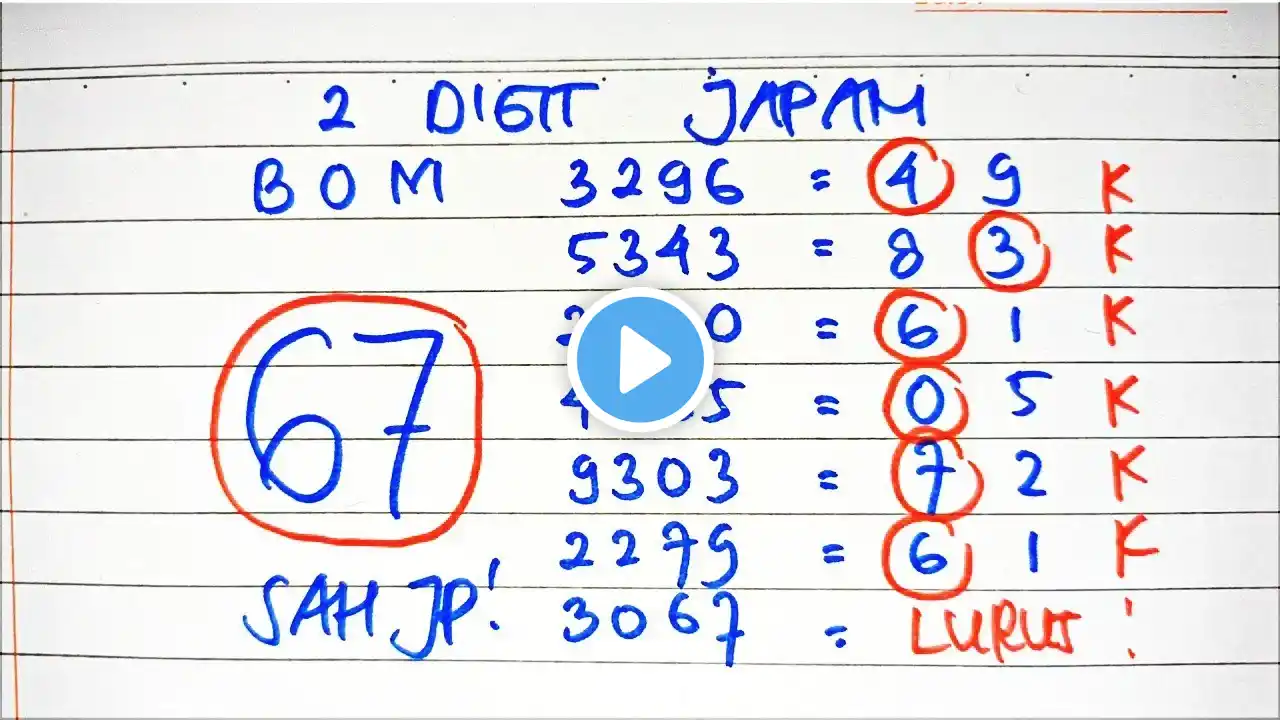 2 DIGIT JAPAM
BOM 3296 = 4 9 K
5343 = 8 3 K
0 = 6 1 K
5 = 0 5 K
67
9303 = 7 2 K
2279 = 6 1 K
SAH JP! 3067 = LURUS!